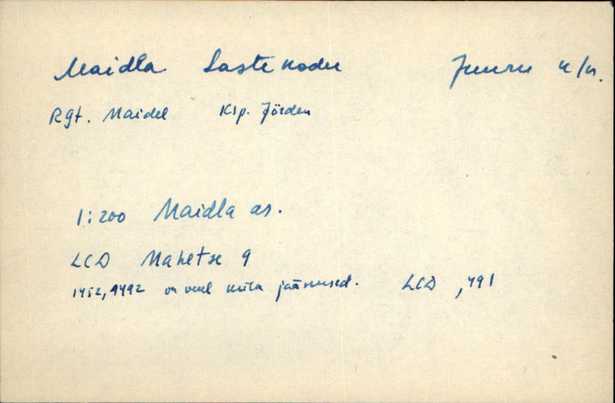 Maidla Lastekodu Juuru k/n.
Rgt. Maidel Ksp. Jörden
1:200 Maidla as.
LCD Mahetse 9
on veel jäänused. LCD , 491